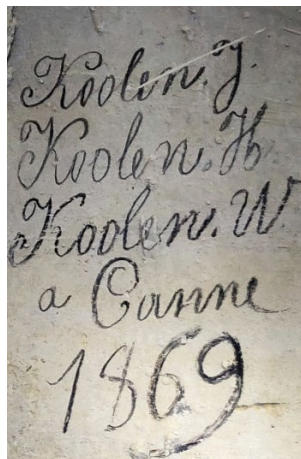 Koolen. J.
Koolen. H
Koolen. W.
a Canne
1869